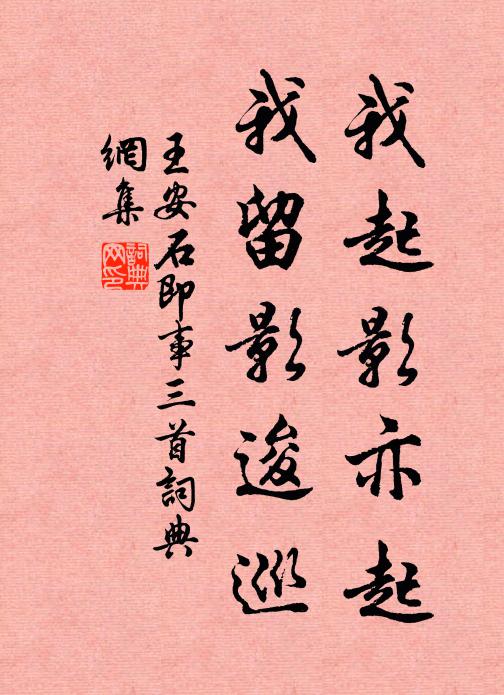 我起影亦起
我留影逡巡
王安石即事三首詞典
網集
詞典
网印